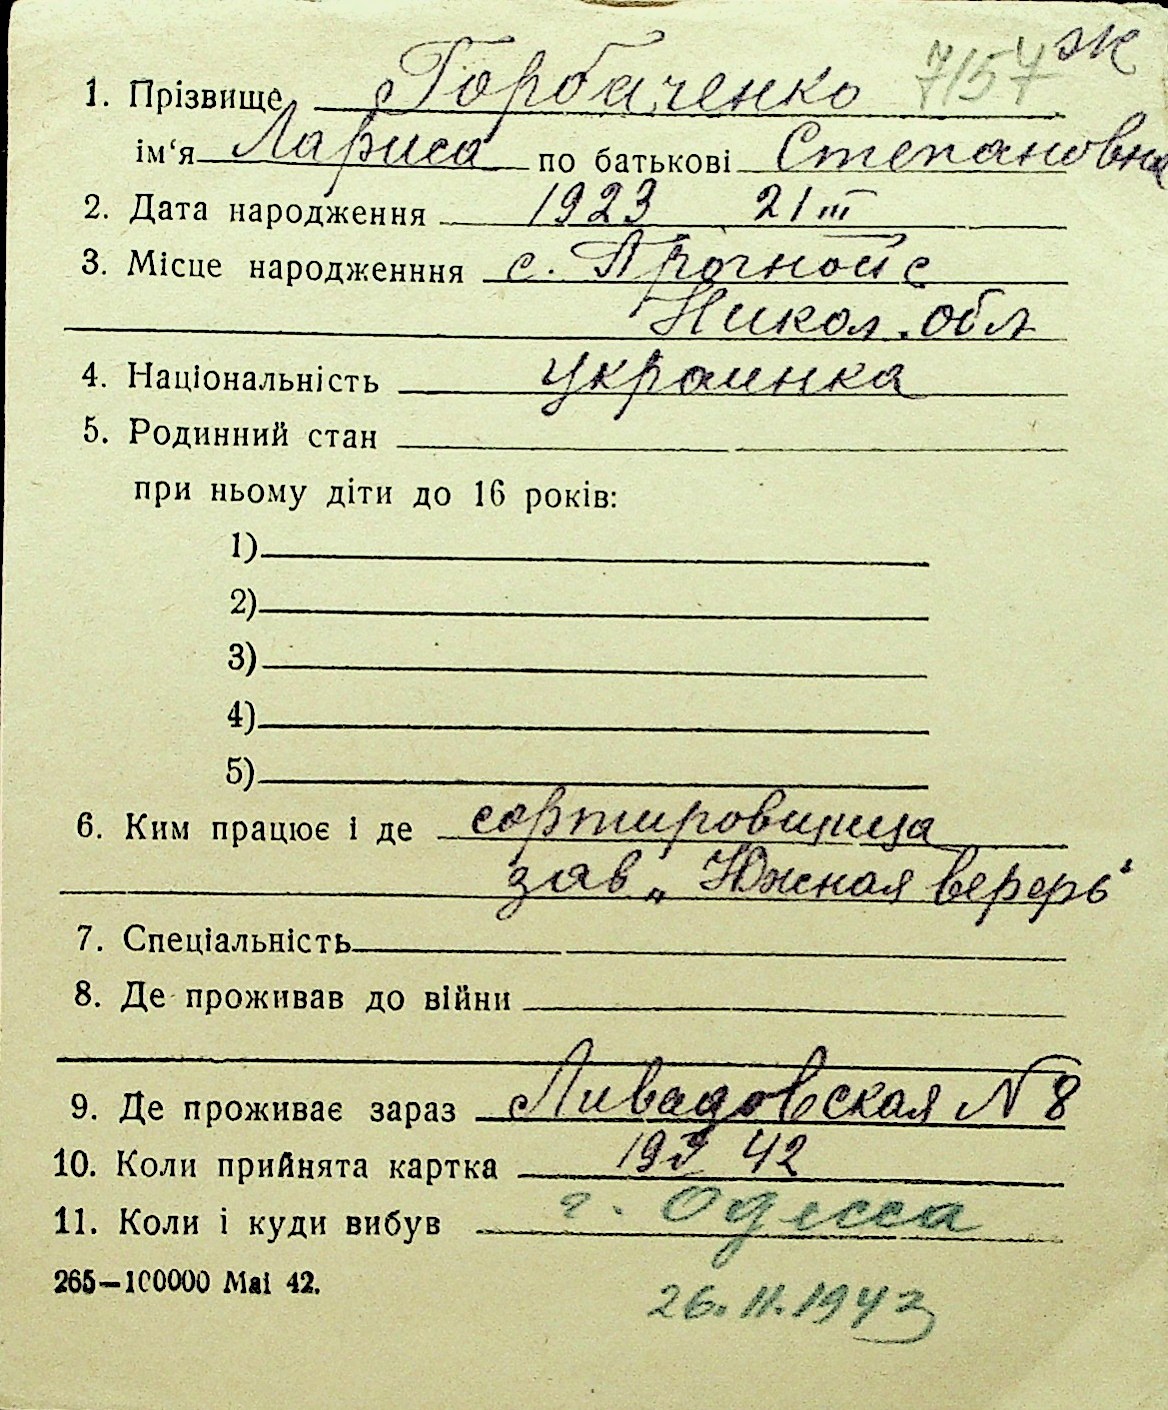 7157 Ж
1. Прізвище Горбаченко
ім‘я Лариса по батькові Степановна
2. Дата народження 1923 21 III
3. Місце народженння с. Прогнойс
Никол. обл
4. Національність украинка
5. Родинний стан
при ньому діти до 16 років:
1)
2)
3)
4)
5)
6. Ким працює і де сортировщица
зав „Южная верфь“
7. Спеціальність
8. Де проживав до війни
9. Де проживає зараз Ливадовская № 8
10. Коли прийнята картка 42
11. Коли і куди вибув г. Одесса
265—100000 Маі 42.
26.11.1943